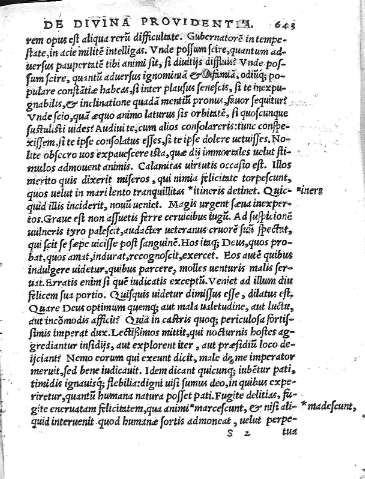 DE DIVINA PROVIDENTIA. 643
rem opus est aliqua rerũ difficultate. Gubernatorẽ in tempe-
state, in acie militẽ intelligas. Vnde possum scire, quantum ad-
uersus paupertatẽ tibi animi sit, si diuitijs diffluis? Vnde pos-
sum scire, quantũ aduersus ignominiã & infamiã, odiũq; po-
pulare constãtiæ habeas, si inter plausus senescis, si te inexpu-
gnabilis, & inclinatione quadã mentiũ pronus fauor sequitur?
Vnde scio, quã æquo animo laturus sis orbitatẽ, si quoscunque
sustulisti uides? Audiui te, cum alios consolareris: tunc cõspe-
xissem, si te ipse consolatus esses, si te ipse dolere uetuisses. No-
lite obsecro uos expauescere ista, quæ dij immortales uelut sti-
mulos admouent animis. Calamitas uirtutis occasio est. Illos
merito quis dixerit miseros, qui nimia felicitate torpescunt,
quos uelut in mari lento tranquillitas *itineris detinet. Quic- *iners
quid illis inciderit, nouũ ueniet. Magis urgent sæua inexper-
tos. Graue est non assuetis ferre ceruicibus iugũ. Ad suspitionẽ
uulneris tyro palescit, audacter ueteranus cruorẽ suũ spectat,
qui scit se sæpe uicisse post sanguinẽ. Hos itaq; Deus, quos pro-
bat, quos amat, indurat, recognoscit, exercet. Eos autẽ quibus
indulgere uidetur, quibus parcere, molles uenturis malis ser-
uat. Erratis enim si quẽ iudicatis exceptũ. Veniet ad illum diu
felicem sua portio. Quisquis uidetur dimissus esse, dilatus est.
Quare Deus optimum quemq; aut mala ualetudine, aut luctu,
aut incõmodis afficit? Quia in castris quoq; periculosa fortis-
simis imperat dux. Lectißimos mittit, qui nocturnis hostes ag-
grediantur insidijs, aut explorent iter, aut præsidiũ loco de-
ijciant? Nemo eorum qui exeunt dicit, male de me imperator
meruit, sed bene iudicauit. Idem dicant quicunq; iubẽtur pati,
timidis ignauisq; flebilia: digni uisi sumus deo, in quibus expe-
riretur, quantũ humana natura posset pati. Fugite delitias, fu-
gite eneruatam felicitatem, qua animi *marcescunt, & nisi ali- *madescunt,
quid interuenit quod humanæ sortis admoneat, uelut perpe-
S 2 tua